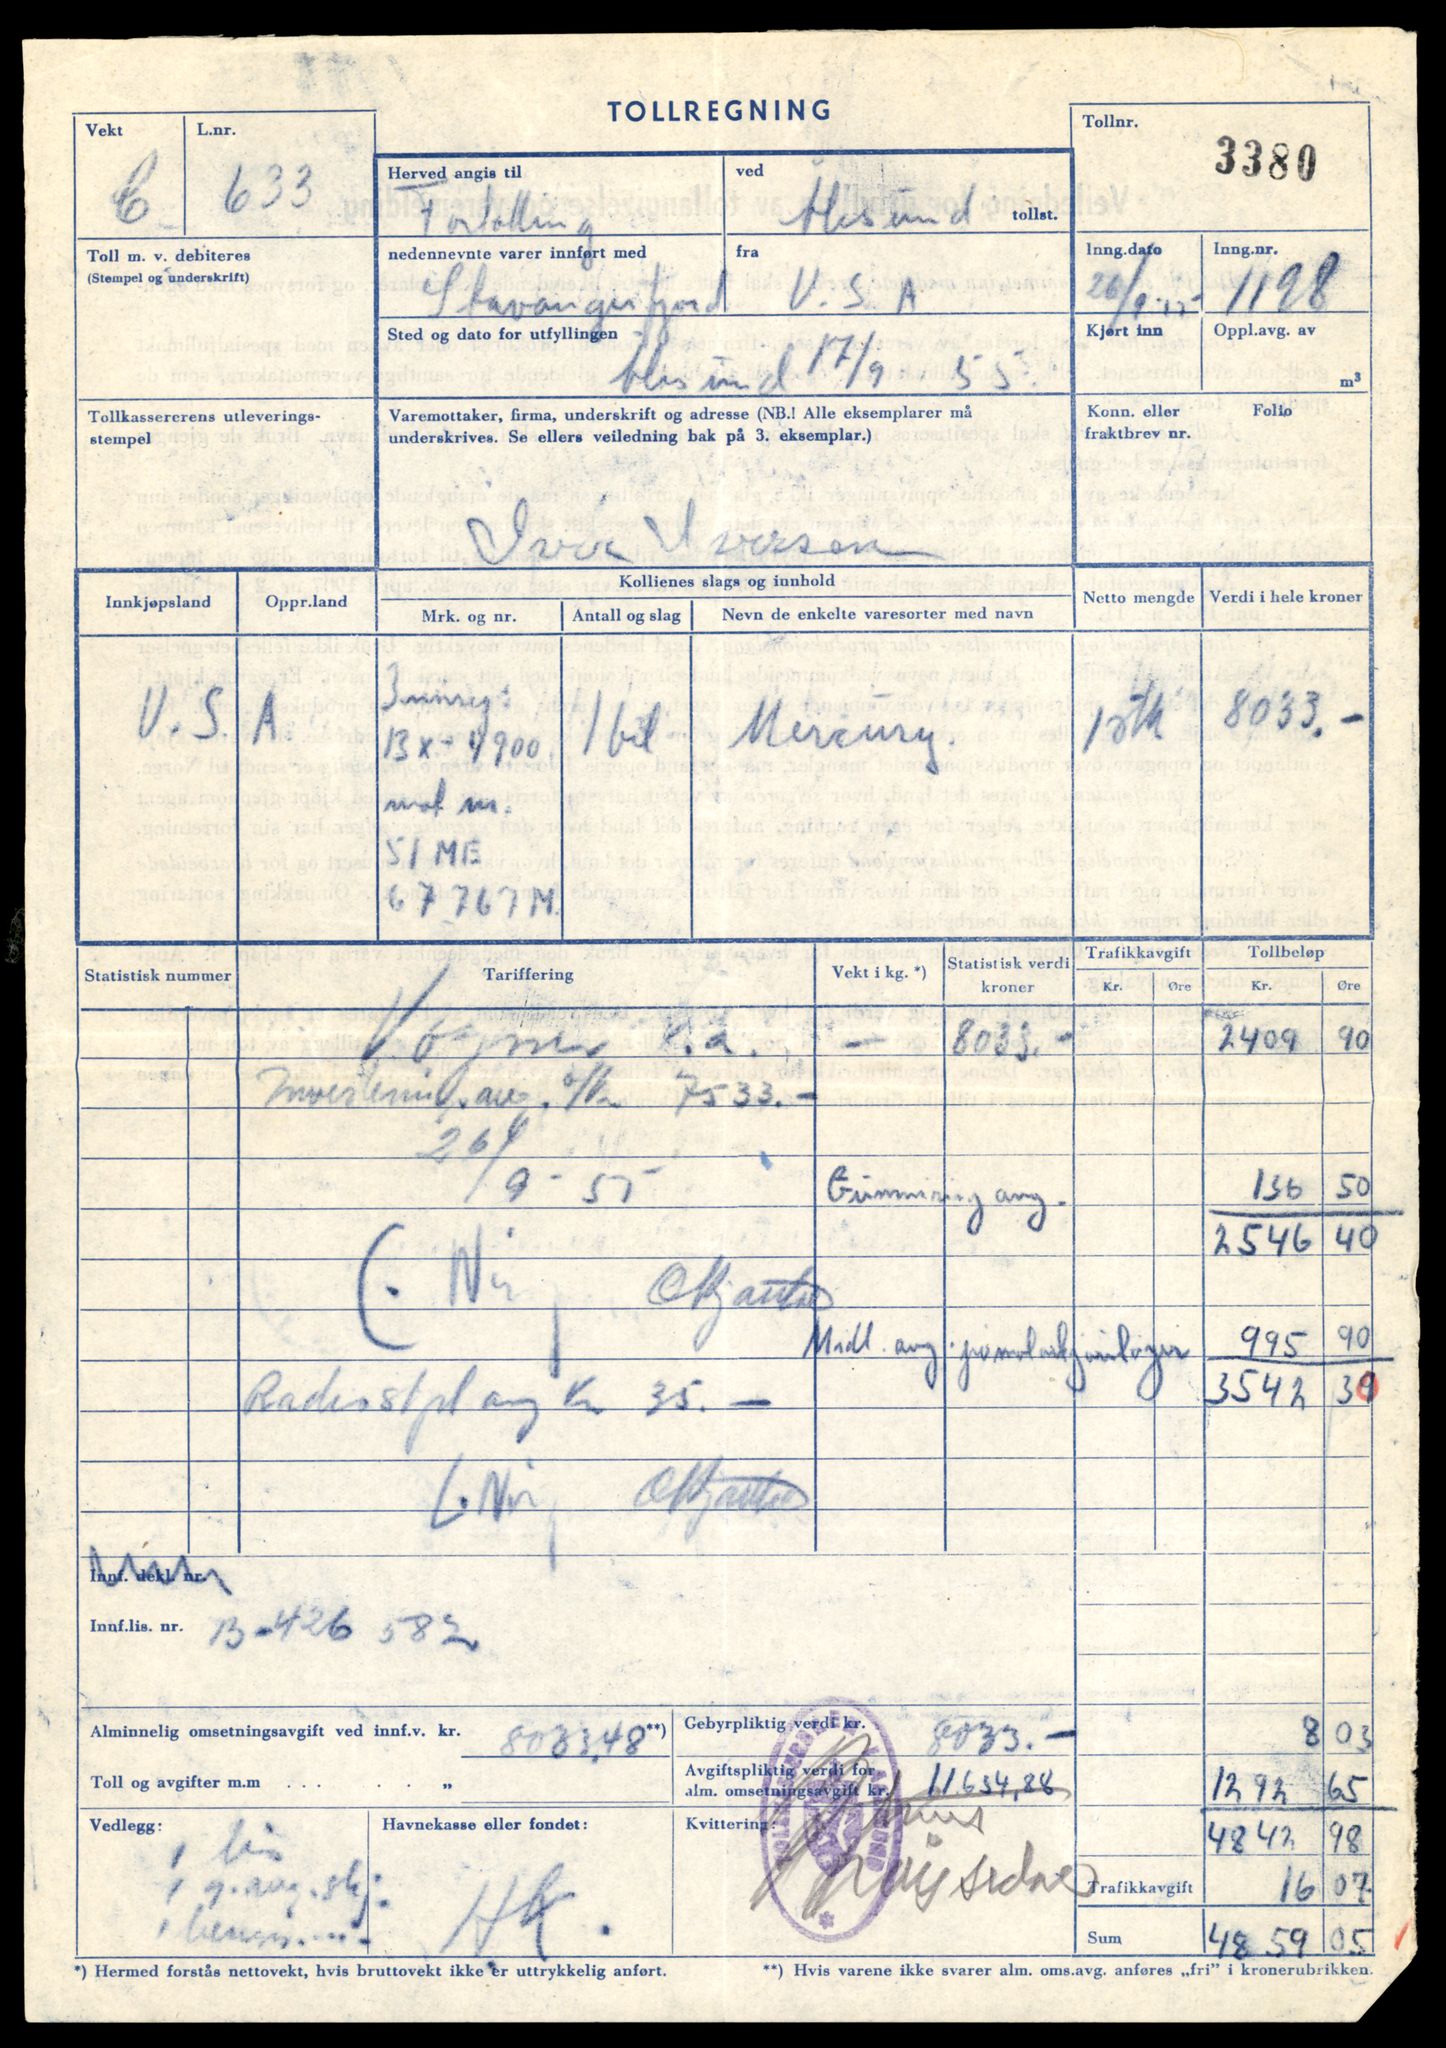 TOLLREGNING
Vekt
L.nr. 633
Herved angis til
Fortolling
ved
Ålesund tollst.
Tollnr.
3380
Toll m. v. debiteres
(Stempel og underskrift)
nedennevnte varer innført med
Stavangerfjord
fra
U.S.A
Inng.dato
Inng.nr.
1198
Sted og dato for utfyllingen
Ålesund 17/9 55.
Kjørt inn
Oppl.avg. av
m³
Tollkassererens utleverings-
stempel
Varemottaker, firma, underskrift og adresse (NB.! Alle eksemplarer må
underskrives. Se ellers veiledning bak på 3. eksemplar.)
Iver Iversen
Konn. eller
fraktbrev nr.
Folio
Innkjøpsland
Oppr.land
Kollienes slags og innhold
Mrk. og nr.
Antall og slag
Nevn de enkelte varesorter med navn
Netto mengde
Verdi i hele kroner
U.S.A.
13 x - 4900
1 bil
Mercury.
1 stk
8033.-
mot nr.
51 ME
67767 M.
Statistisk nummer
Tariffering
Vekt i kg. *)
Statistisk verdi
kroner
Trafikkavgift
Kr. Øre
Tollbeløp
Kr. Øre
Vogner k.a. — 8033.- 2409 90
7533.-
26/
9-55
Gummiring avg. 136 50
2546 40
Midl. avg. 995 90
3542 30
Radiostpl avg kr 35. —
Innf. dekl. nr.
Innf.lis. nr. B-426 582
Alminnelig omsetningsavgift ved innf.v. kr. 8033,48 **)
Gebyrpliktig verdi kr. 8033.- 8 03
Toll og avgifter m.m . . . . . . „
Avgiftspliktig verdi for
alm. omsetningsavgift kr. 11.634,88 1292 65
Vedlegg:
1 lis
Havnekasse eller fondet:
HK.
Kvittering:
4842 98
Trafikkavgift 16 07
Sum 4859 05
*) Hermed forstås nettovekt, hvis bruttovekt ikke er uttrykkelig anført.
**) Hvis varene ikke svarer alm. oms.avg. anføres „fri” i kronerubrikken.